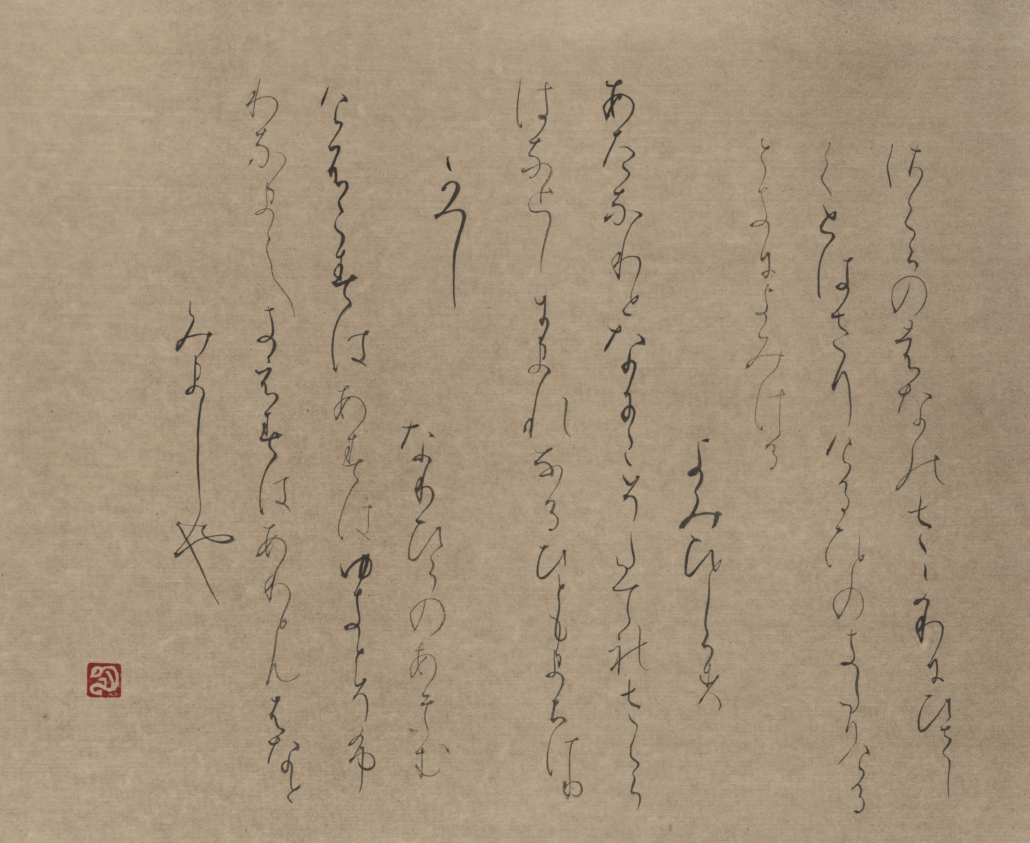 さくらのはなのさかりにひさし
くとはさりけるひとのきたりける
ときによみける
よみひとしらす
あたなりとなにこそたてれさくら
はなとしにまれなるひともまちけり
かへし
なりひらのあそむ
けふこすはあすはゆきとそふ
りなましきえすはありともはなと
みましや